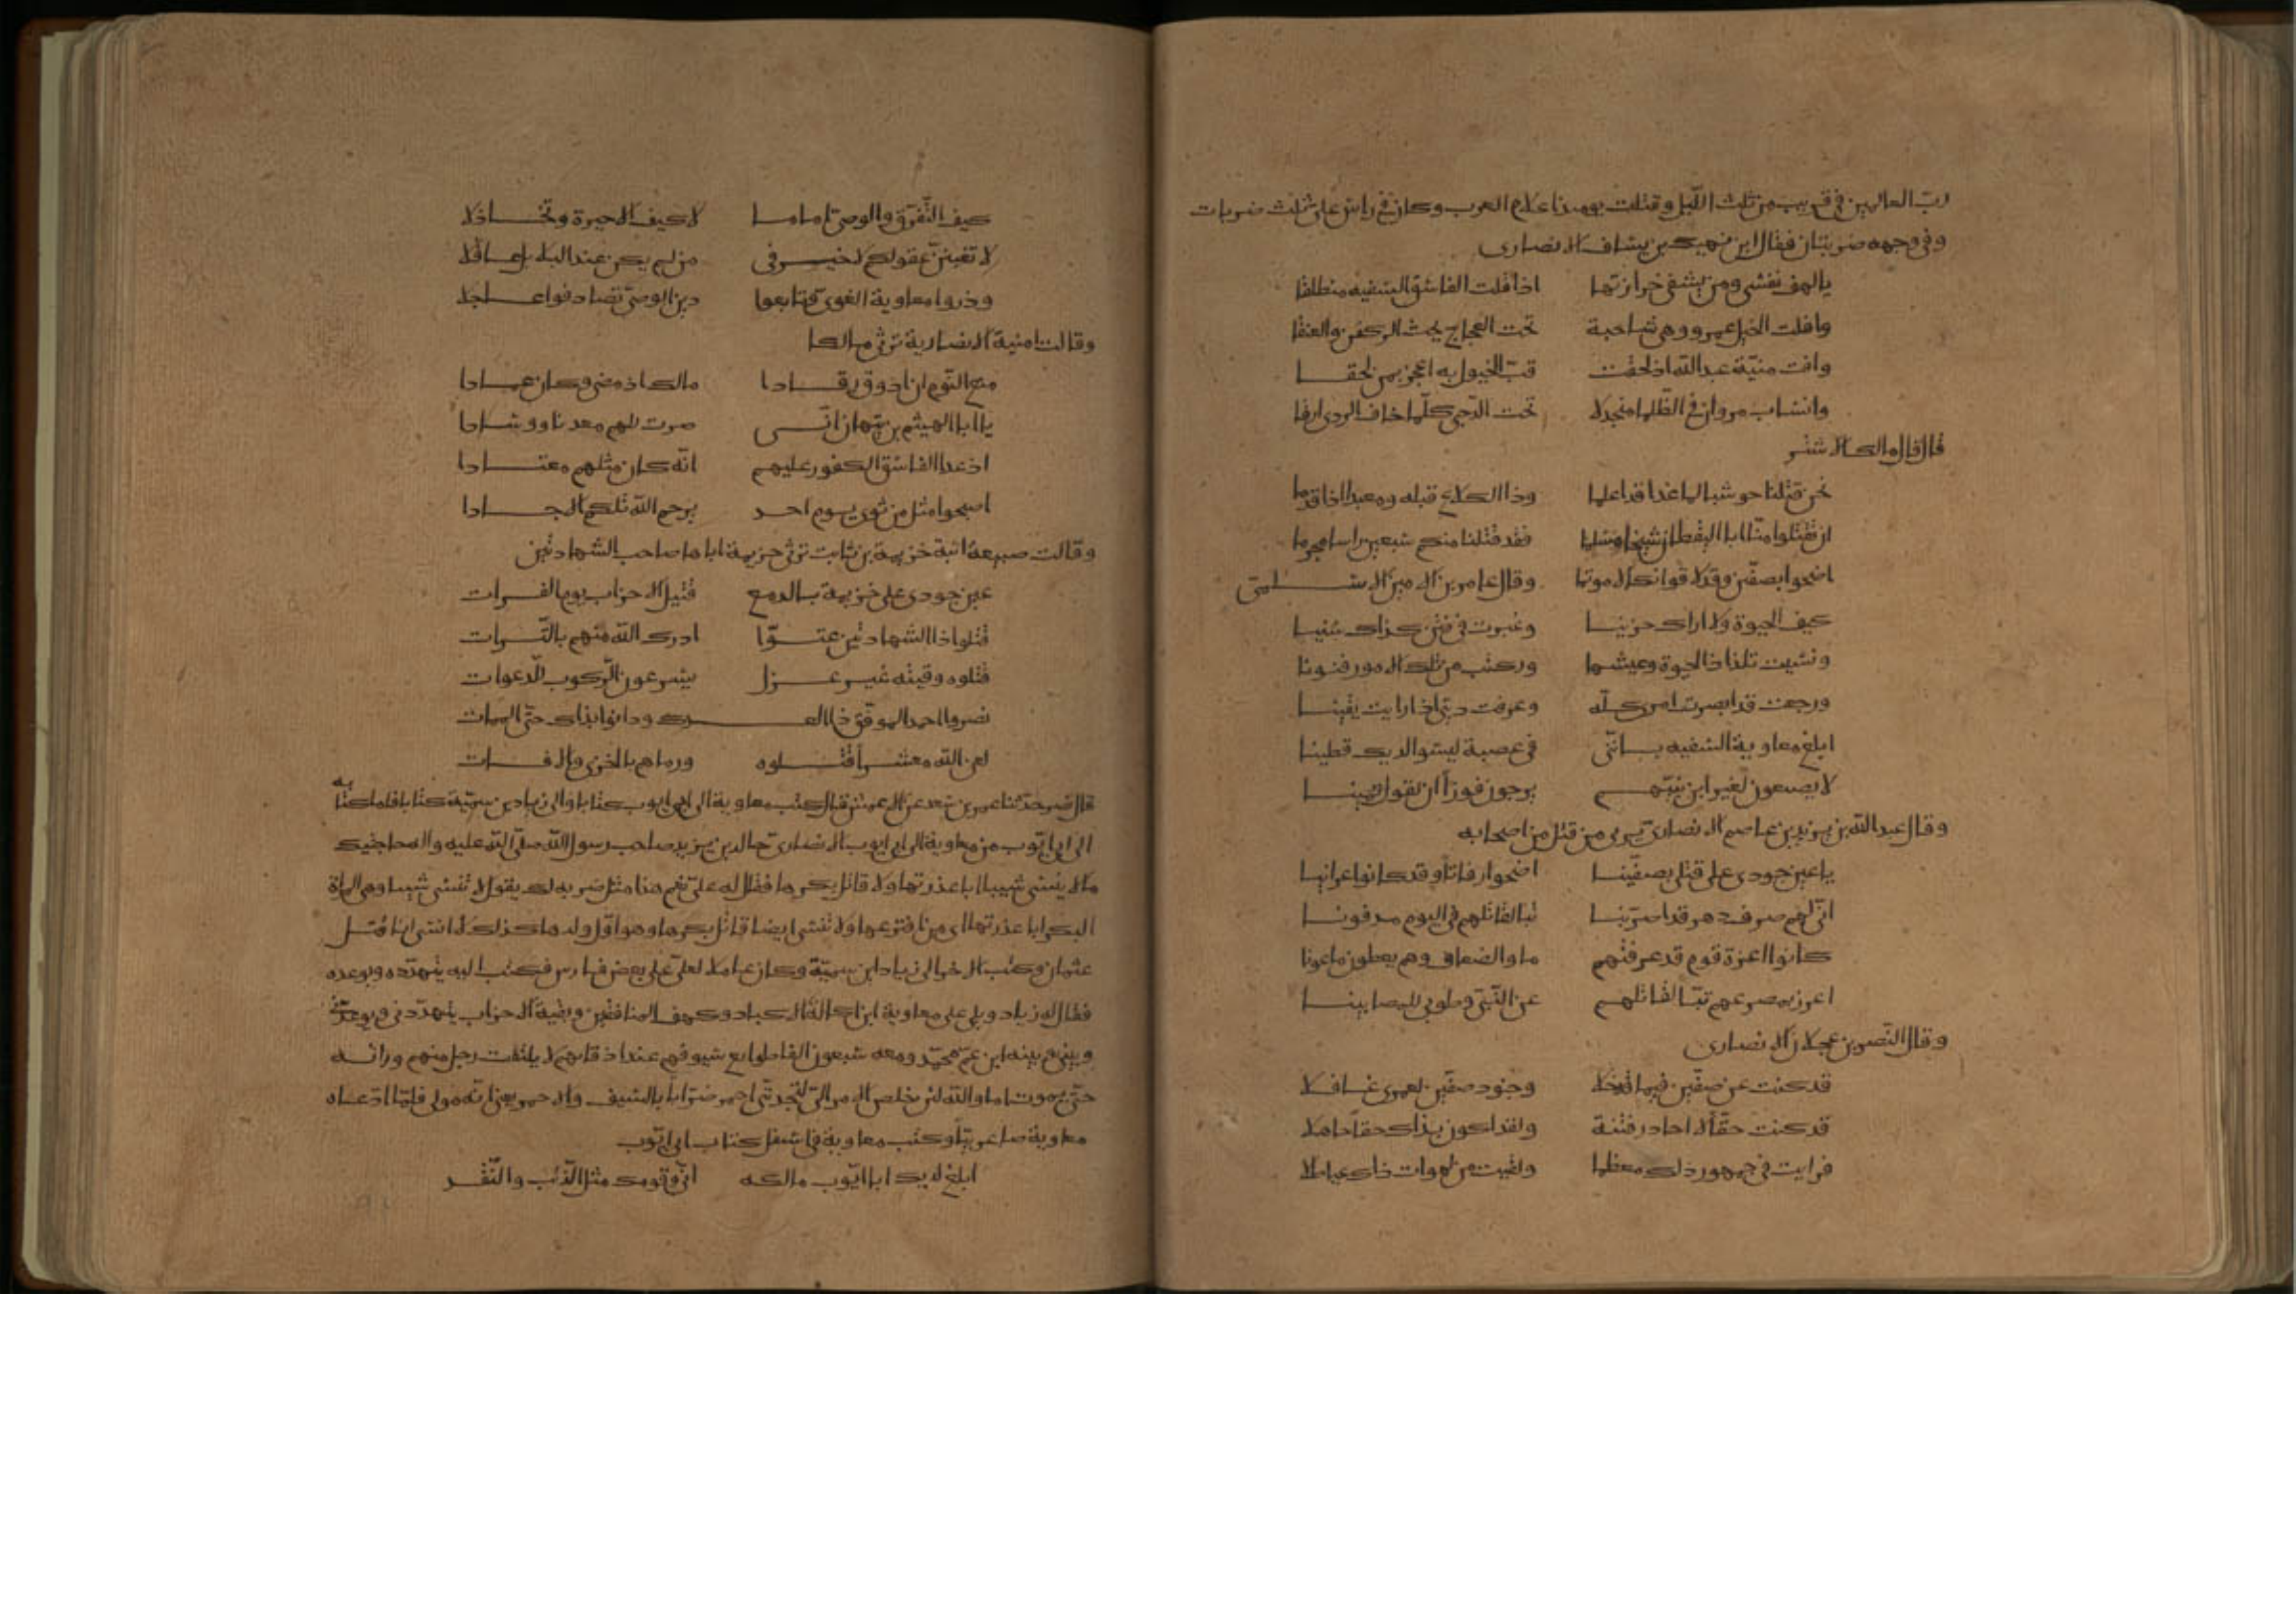 ربّ العالمين في قريب من ثلث اللّيل وقتلت يومئذ اعلام العرب وكان في راس علىّ ثلث ضربات
وفى وجهه ضربتان فقال ابن نهيك بن يساف الانصارى
يا لهف نفسى ومن يشفى حزازتها اذ افلت الفاسق السفيه منطلقا
وافلت الخيل عمرو وهى شاحبة تحت العجاج يحث الركض والعنقا
وافت منيّة عبد اللّه اذ لحقت قبّ الخيول به اعجز بمن لحقا
وانساب مروان في الظلما منجدلا تحت الدّجى كلّما خاف الردى ارقا
قال قال مالك الاشتر
نحن قتلنا حوشبا لما غدا قد اعلما وذا الكلاع قبله ومعبدا اذ اقدما
ان تقتلوا منّا ابا اليقظان شيخا مسلما فقد قتلنا منكم سبعين راسا مجرما
اضحوا بصفّين وقد لاقوا نكالا موتما وقال عامر بن الامين السلمىّ
كيف الحيوة ولا اراك حزينا وغبرت في فتن كذاك سنينا
ونسيت تلذاذ الحيوة وعيشها وركبت من تلك الامور فنونا
ورجعت قد ابصرت امرى كلّه وعرفت دينى اذ رايت يقينا
ابلغ معاوية السفيه بانّنى في عصبة ليسوا لديك قطينا
لا يصعون لغير ابن نبيّهم يرجون فوزا ان
وقال عبد اللّه بن يزيد بن عاصم الانصارىّ يرثى من قتل من اصحابه
يا عين جودى على قتلى بصفّينا اضحوا رفاتا وقد كانوا عرانينا
انّى لهم صرف دهر قد اضرّ بنا تبا لقاتلهم في اليوم مدفونا
كانوا اعزة قوم قد عرفتهم ماوا الضعاف وهم يعطون ماعونا
اعزز بمصرعهم تبّا لقاتلهم عن النّبىّ وطوبى للمصابينا
وقال النّضر بن عجلان الانصارى
قد كنت عن صفّين فيما قد خلا وجنود صفّين لعمرى غافلا
قد كنت حقّا لا احاذر فتنة ولقد اكون بذاك حقّا جاهلا
فرايت في جمهور ذلك معظما ولقيت من لهوات ذاك عياطلا
كيف التّفرّق والوصىّ امامنا لا كيف الا حيرة وتخاذلا
لا تغبننّ عقولكم لا خير في من لم يكن عند البلابل عاقلا
وذروا معاوية الغوى وتابعوا دين الوصىّ تصادفوا عاجلا
وقالت امنية الانصارية ترثى مالكا
منع النّوم ان اذوق رقادا مالك اذ مضى وكان عمادا
يا ابا الهيثم بن تيّهان انّى صرت للهم معدنا ووسادا
اذ غدا الفاسق الكفور عليهم انّه كان مثلهم معتادا
اصبحوا مثل من ثوى يوم احد يرحم اللّه تلكم الاجسادا
وقالت ضبيعة ابنة خزيمة بن ثابت ترثى خزيمة اباها صاحب الشهادتين
عين جودى على خزيمة بالدمع قتيل الاحزاب يوم الفرات
قتلوا ذا الشهادتين عتوّا ادرك اللّه منهم بالتّرات
قتلوه وفتية غير عزل يسرعون الرّكوب للدّعوات
نصروا احمد الموفّق ذا العدل ودانوا بذاك حتّى الممات
لعن اللّه معشرا قتلوه ورماهم بالخزى والافات
قال نصر حدّثنا عمر بن سعد عن الاعمش قال كتب معاوية الى ابى ايوب كتابا والى زياد بن سميّة كتابا فاما كتابه
الى ابى ايّوب من معاوية الى ابى ايوب الانصارىّ خالد بن يزيد صاحب رسول اللّه صلّى اللّه عليه واله حاجيتك
ما لا ينسى شيبا ابا عذرتها ولا قاتل بكرها فقال له على نعم هذا مثل ضربه لك يقول لا تنسى شيبا وهى المراة
البكر ابا عذرتها الذى افترعها ولا تنسى ايضا قاتل بكرها وهو اوّل ولدها كذلك لا انسى انا قتل
عثمان وكتب الاخر الى زياد ابن سميّة وكان عاملا لعلىّ على بعض فارس فكتب اليه يتهدّده ويوعده
فقال زياد ويلى على معاوية ابن اكالة الاكباد وكهف المنافقين وبقيّة الاحزاب يتهدّدنى ويوعدنى
وبينى وبينه ابن عمّ محمّد ومعه سبعون الفا طوايع سيوفهم عند اذقانهم لا يلتفت رجل منهم وراه
حتّى يموت اما واللّه لئن خلص الامر الىّ لتجدنّى احمر ضرّابا بالسّيف والاحمر يعنى انّه مولى فلمّا ادّعاه
معاوية صار عربيّا وكتب معاوية في اسفل كتاب ابى ايّوب
ابلغ لديك ابا ايّوب مالكة انّى وقومك مثل الذّئب والنّقد